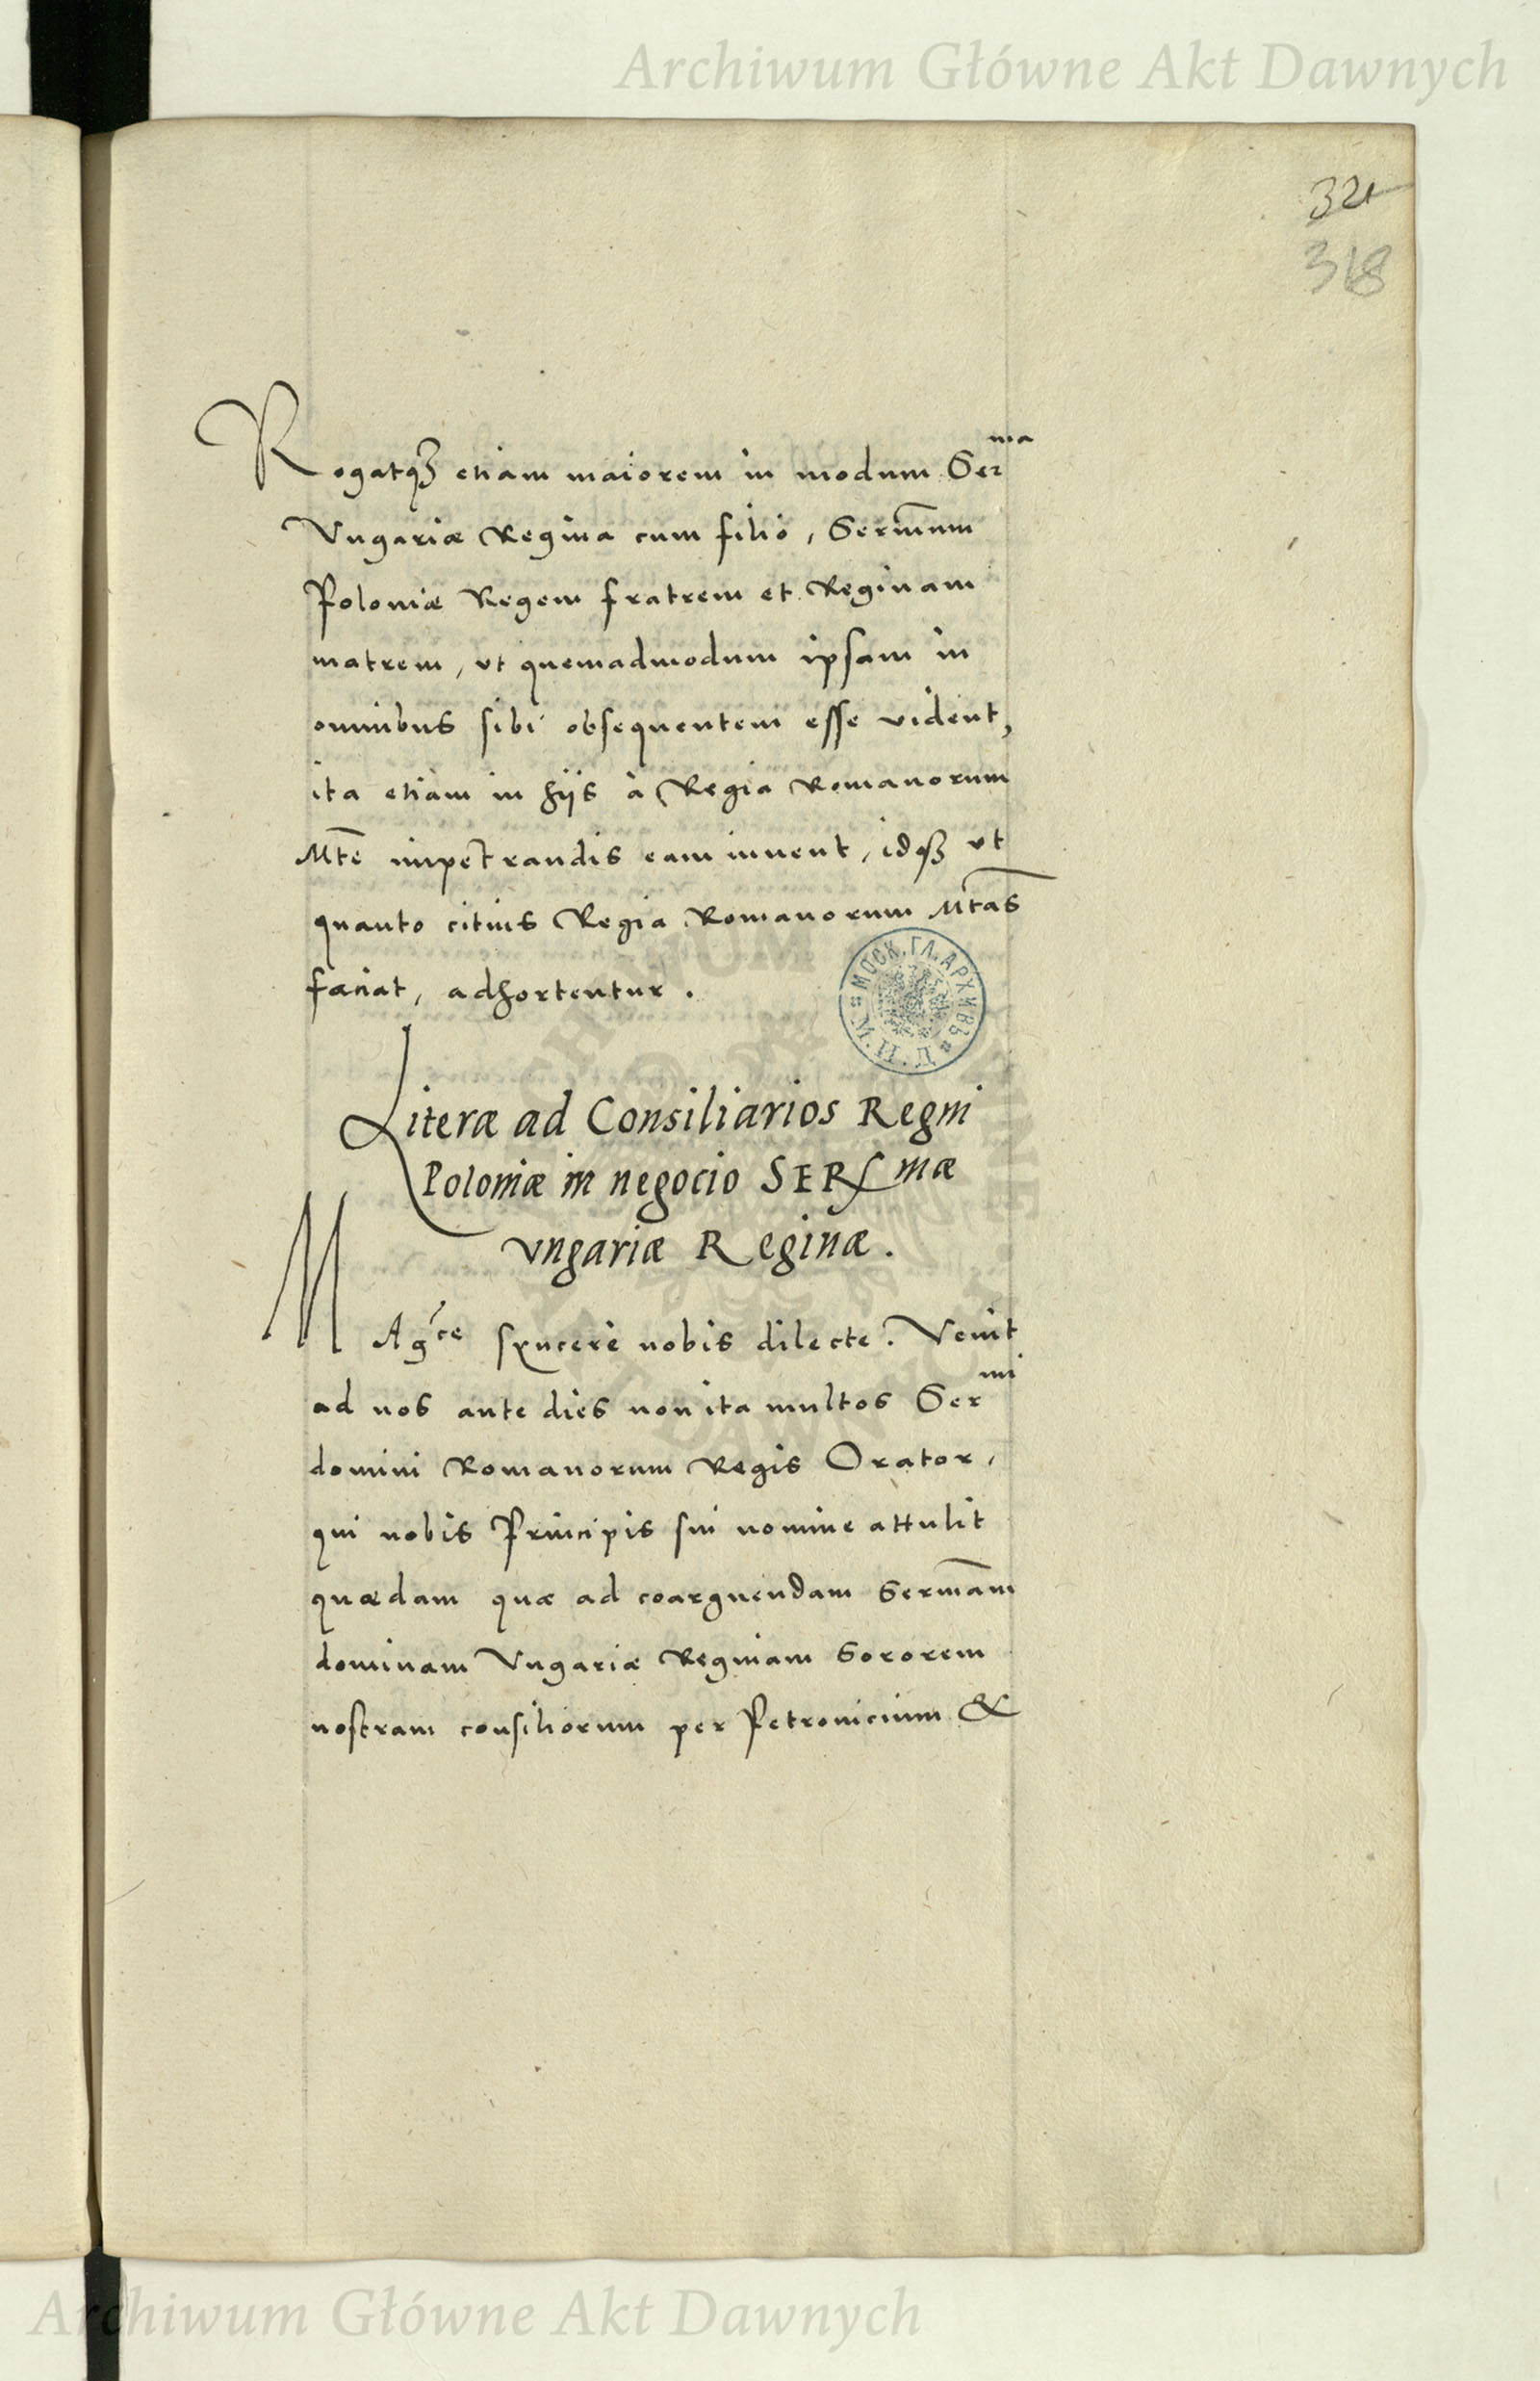 Archiwum Główne Akt Dawnych
321
318
Rogatqꝫ etiam maiorem in modum Ser^ma
Vngariæ Regina cum filio, Serm̄um
Poloniæ Regem fratrem et Reginam
matrem, vt quemadmodum ipsam in
omnibus sibi obsequentem esse vident,
ita etiam in hijs à Regia Romanorum
Mt̄e impetrandis eam iuuent, idqꝫ vt
quanto citius Regia Romanorum Mt̄as
faciat, adhortentur.
МОСК. ГЛ. АРХИВЪ
Literæ ad Consiliarios Regni
Poloniæ in negocio SERmæ
vngariæ Reginæ.
MAg^ce syncere nobis dilecte. Venit
ad nos ante dies non ita multos Ser^mi
domini Romanorum Regis Orator,
qui nobis Principis sui nomine attulit
quædam quæ ad coarguendam Serm̄am
dominam Vngariæ Reginam Sororem
nostram consiliorum per Petrouicium &
Archiwum Główne Akt Dawnych